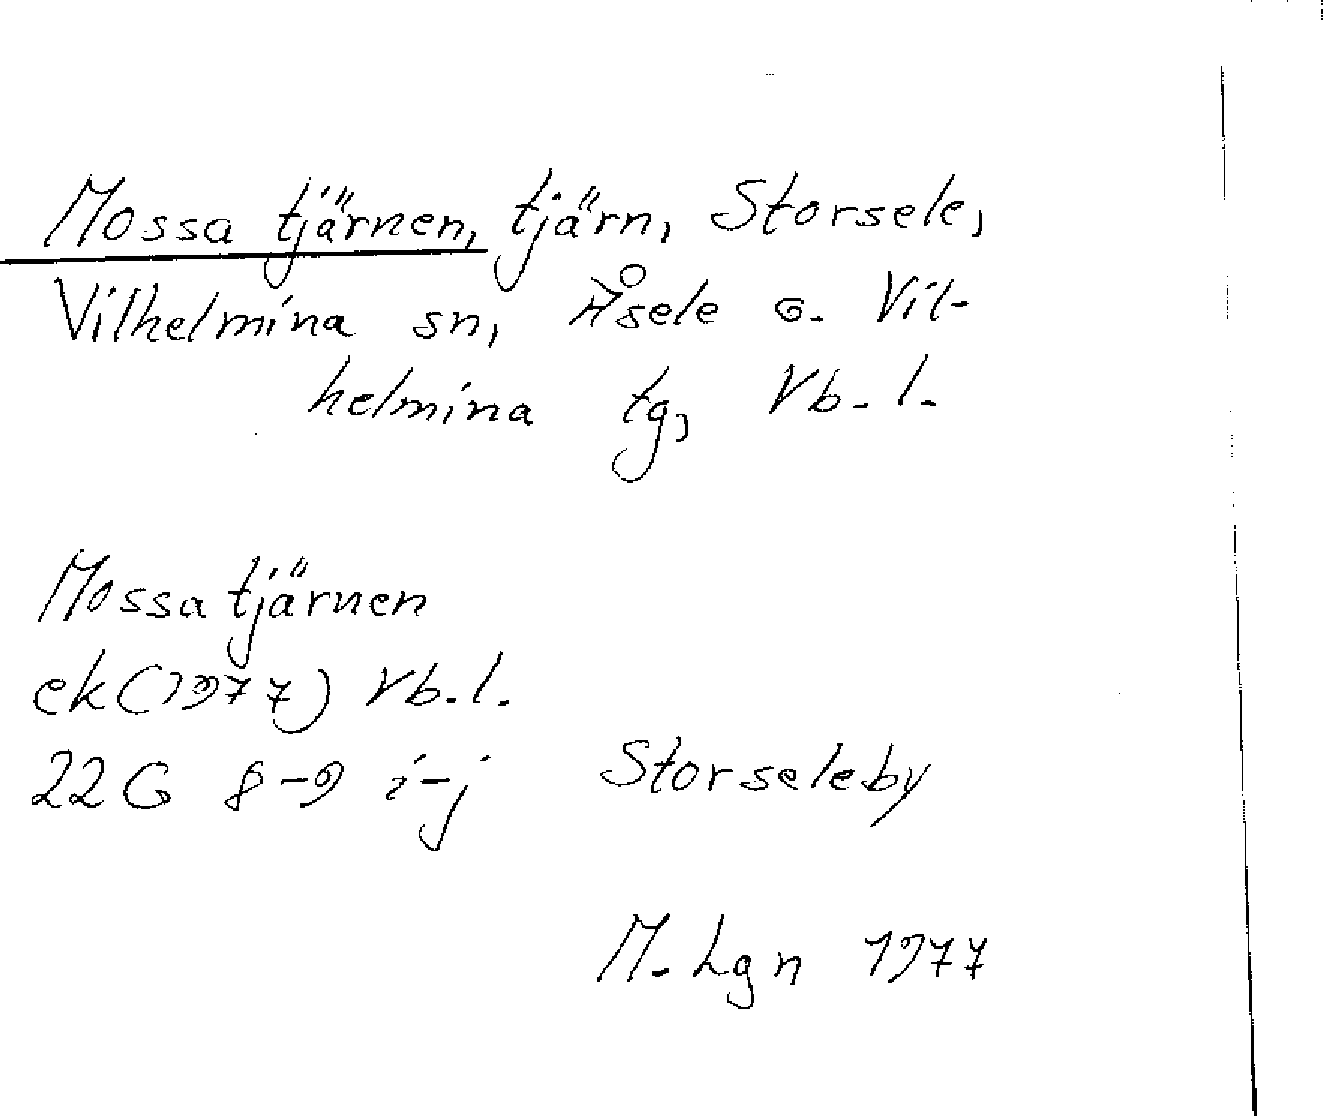 Mossa tjärnen, tjärn, Storsele,
Vilhelmina sn, Åsele o. Vil-
helmina tg, Vb. l.
Mossa tjärnen
ek (1977) Vb. l.
22 G 8-9 i-j Storseleby
M. Lgn 1977